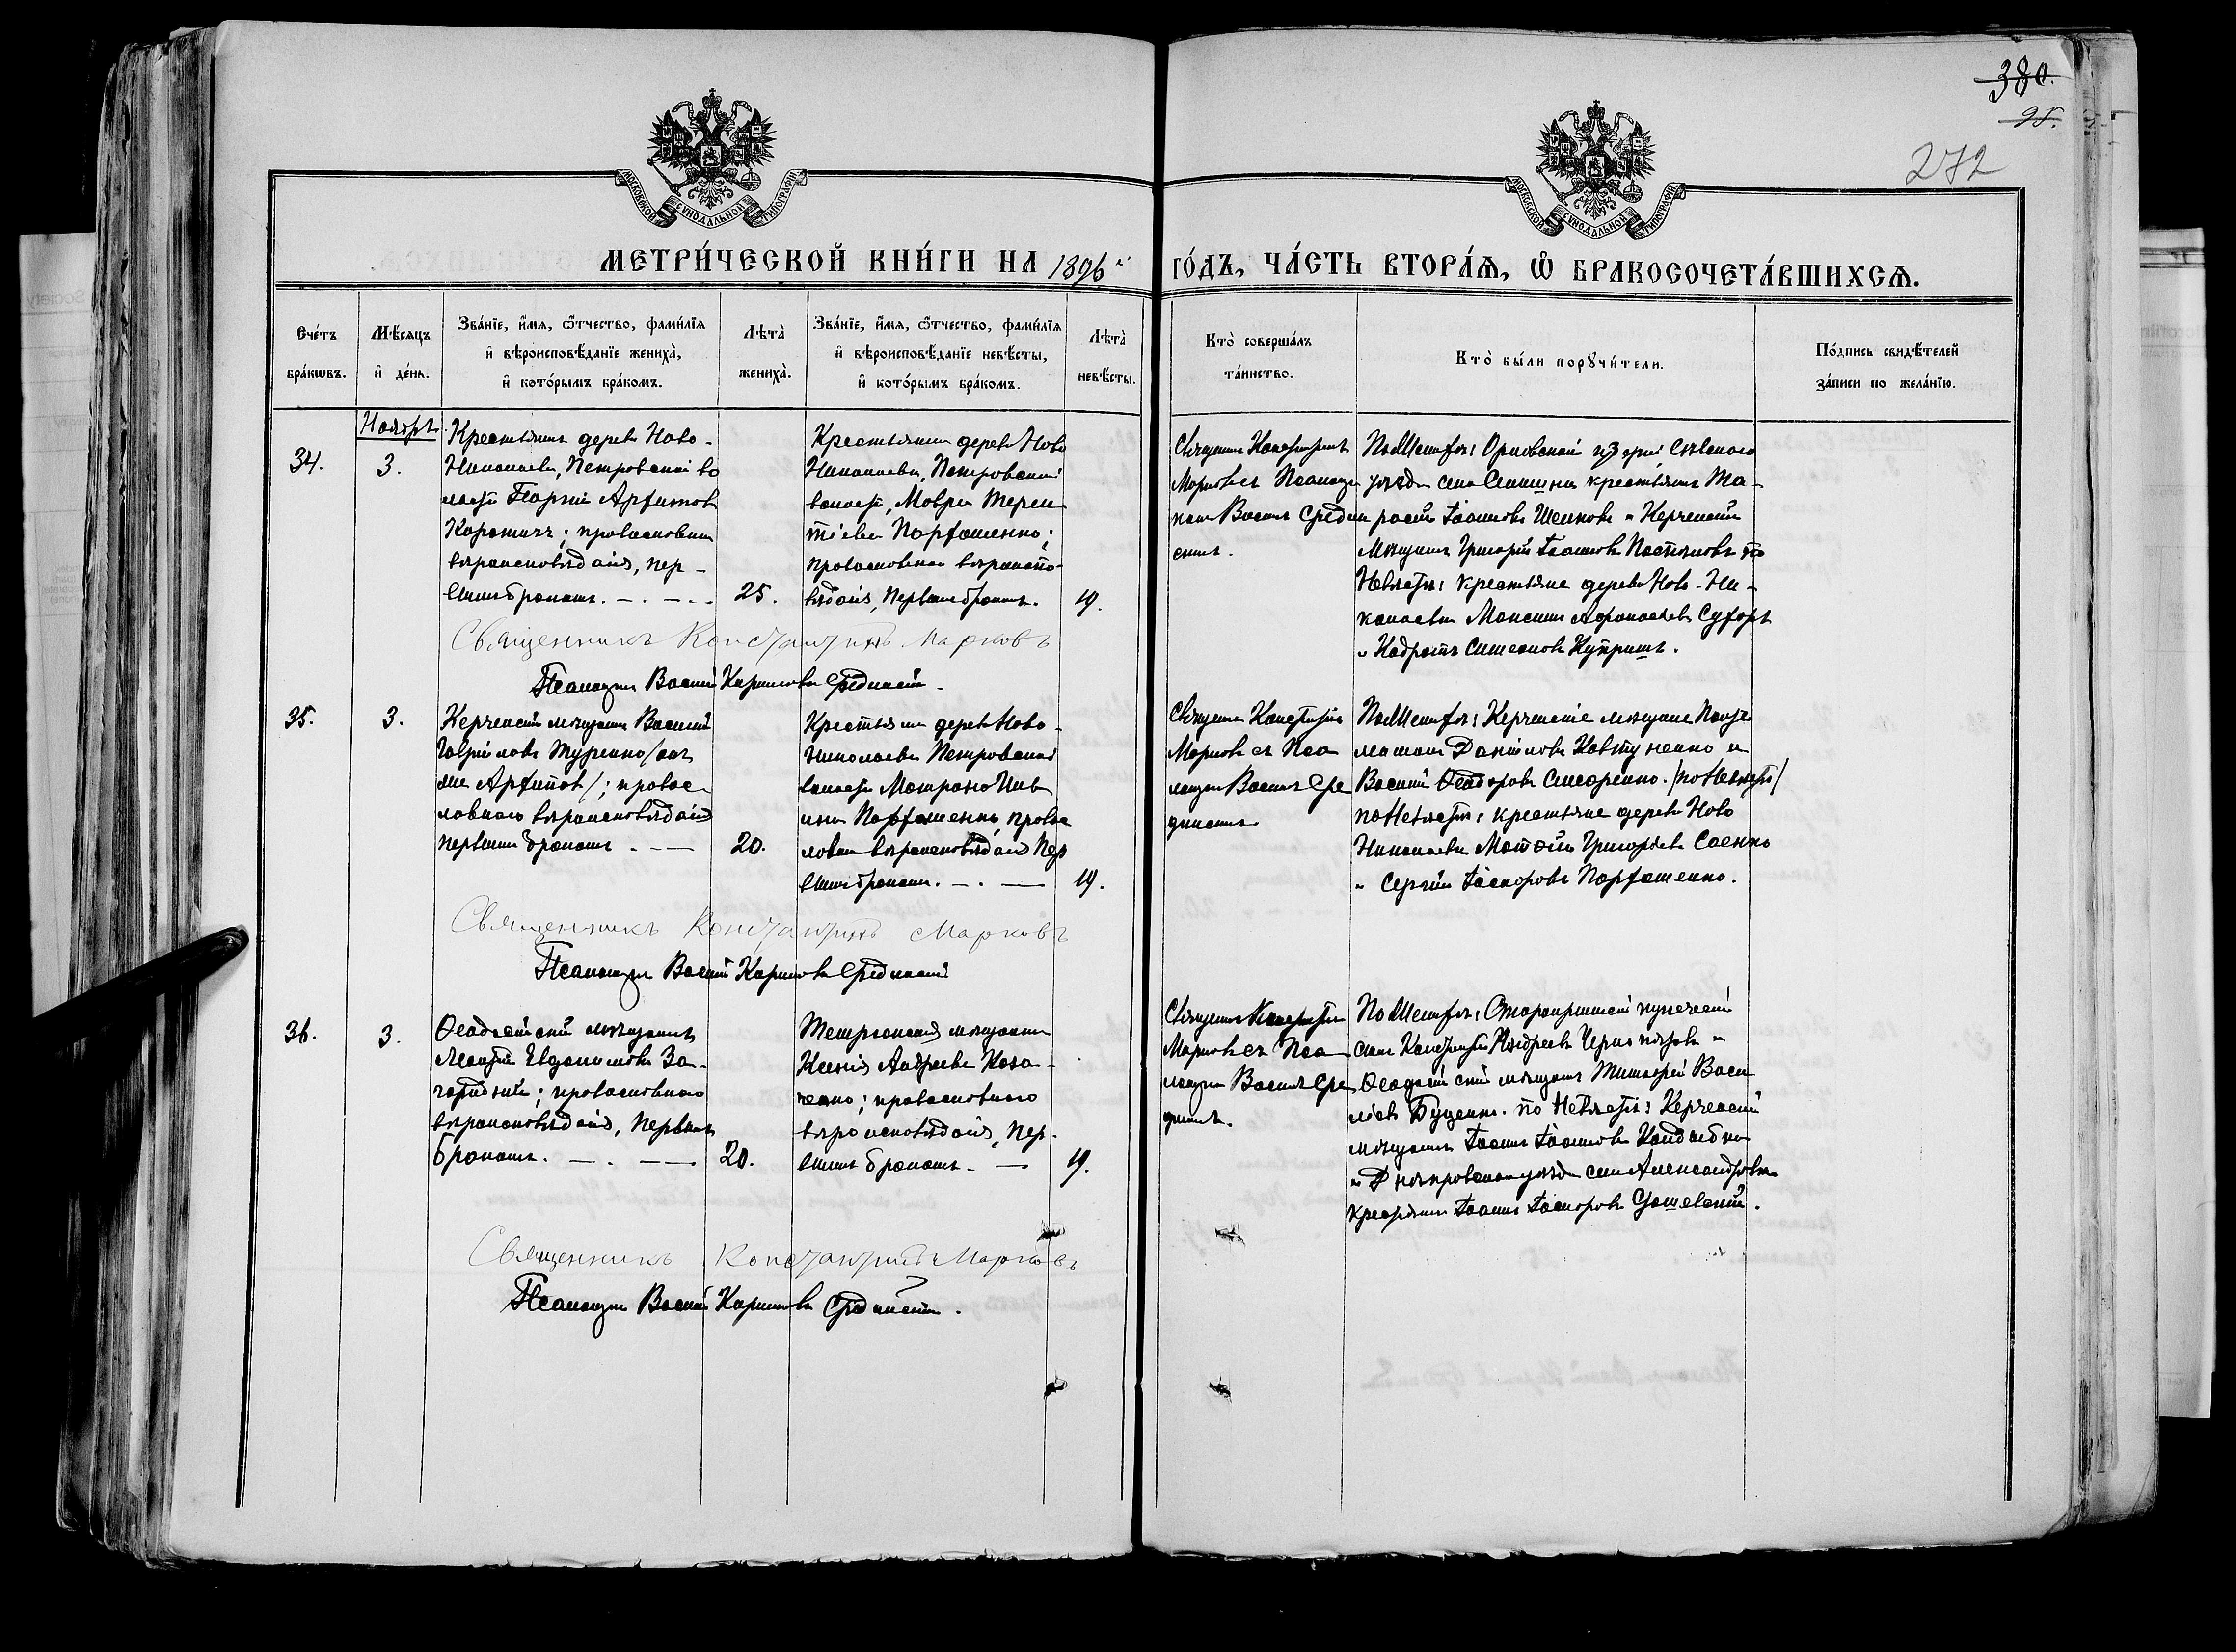 380.
95.
272
МОСКОВСКОЙ СѴНОДАЛЬНОЙ ТИПОГРАФІИ
МОСКОВСКОЙ СѴНОДАЛЬНОЙ ТИПОГРАФІИ
МЕТРИ́ЧЕСКОЙ КНИ́ГИ НА 1896 й ГО́ДЪ, ЧА́СТЬ ВТОРА́Ѧ, Ѡ҆ БРАКОСОЧЕТА́ВШИХСѦ.
Сче́тъ
бра́кѡвъ.
Мѣ́сяцъ
и҆ де́нь.
Зва́нїе, и҆́мя, ѻ҆́тчество, фами́лїя
и҆ вѣроисповѣ́данїе жениха̀,
и҆ кото́рымъ бра́комъ.
Лѣта̀
жениха̀.
Зва́нїе, и҆́мя, ѻ҆́тчество, фами́лїя
и҆ вѣроисповѣ́данїе невѣ́сты,
и҆ кото́рымъ бра́комъ.
Лѣта̀
невѣ́сты.
Кто̀ соверша́лъ
та́инство.
Кто̀ бы́ли порꙋчи́тели.
По́дпись свидѣ́телей
за́писи по жела́нїю.
Ноябрь.
34.
3.
Крестьянинъ дерев. Ново-
Николаевки, Петровской во
лости Георгій Архиповъ
; православнаго
вѣроисповѣданія, пер-
вымъ бракомъ.
25.
Крестьянка дерев. Ново
Николаевки, Петровской
волости, Мавра Терен
тіева Парфоменко;
православнаго вѣроиспо-
вѣданія, первымъ бракомъ.
19.
Священникъ Константинъ
Марковъ съ Псаломщи
комъ Василіемъ Средин
скимъ.
По Женихѣ: Орловской губерніи Сѣвскаго
уѣзда села крестьянинъ Та-
расій Іоанновъ и Керченскій
мѣщанинъ Григорій Іоанновъ по
Невѣстѣ: крестьяне дерев. Ново-Ни-
колаевки Максимъ Афанасіевъ
и Кодратъ Симеоновъ Купришъ.
Священникъ Константинъ Марковъ
Псаломщикъ Василій Кирилловъ Срединскій.
35.
3.
Керченскій мѣщанинъ Василій
Гавріиловъ /онъ
же Архиповъ/; правос-
лавнаго вѣроисповѣданія
первымъ бракомъ
20.
Крестьянка дерев. Ново-
Николаевки Петровской
волости Матрона
Парфоменко, правос
лавнаго вѣроисповѣданія пер
вымъ бракомъ.
19.
Священникъ Константинъ
Марковъ съ Пса
ломщикомъ Василіемъ Сре
динскимъ.
По Женихѣ: Керченскіе мѣщане
Даніиловъ Ковтуненко и
Василій Ѳеодоровъ Сидоренко. /по Невѣстѣ/
по Невѣстѣ: крестьяне дерев. Ново
Николаевки Матѳій Григорьевъ Саенко
и Сергій Парфоменко.
Священникъ Константинъ Марковъ
Псаломщикъ Василій Кирилловъ Срединскій
36.
3.
Ѳеодосійскій мѣщанинъ
Леонтій Евдокимовъ За-
городній; православнаго
вѣроисповѣданія, первымъ
бракомъ.
20.
мѣщанка
Ксенія Андреева Коза-
ченко; православнаго
вѣроисповѣданія, пер-
вымъ бракомъ.
19.
Священникъ Константинъ
Марковъ съ Пса
ломщикомъ Василіемъ Сре
динскимъ.
По Женихѣ: Старокрымскій купеческій
сынъ Константинъ Андреевъ и
Ѳеодосійскій мѣщанинъ Тимоѳей Васи
ліевъ Буценко. по Невѣстѣ: Керченскій
мѣщанинъ Іоаннъ Іоанновъ
и Днѣпровскаго уѣзда села Александровки
крестьянинъ Іоаннъ
Священникъ Константинъ Марковъ
Псаломщикъ Василій Кирилловъ Срединскій.